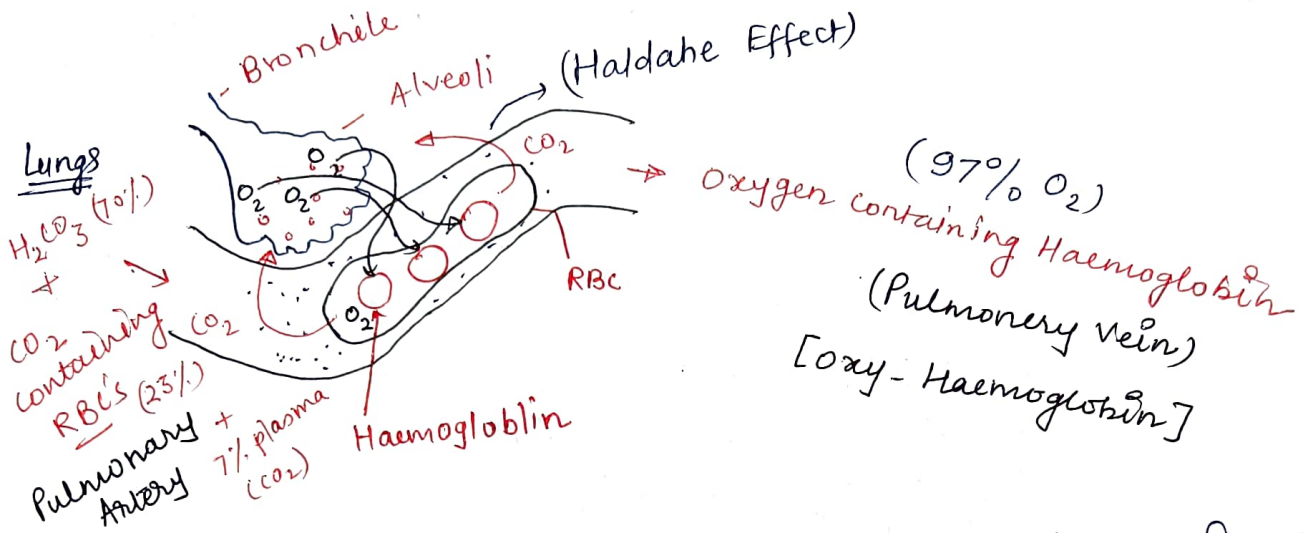 Bronchile
Alveoli
(Haldahe Effect)
Lungs
H2CO3 (70%)
+
CO2
containing
RBC's (23%)
+
7% plasma
(CO2)
Pulmonary
Artery
O2
O2
O2
O2
CO2
CO2
RBC
Haemogloblin
(97% O2)
Oxygen containing Haemoglobin
(Pulmonery Vein)
[oxy-Haemoglobin]